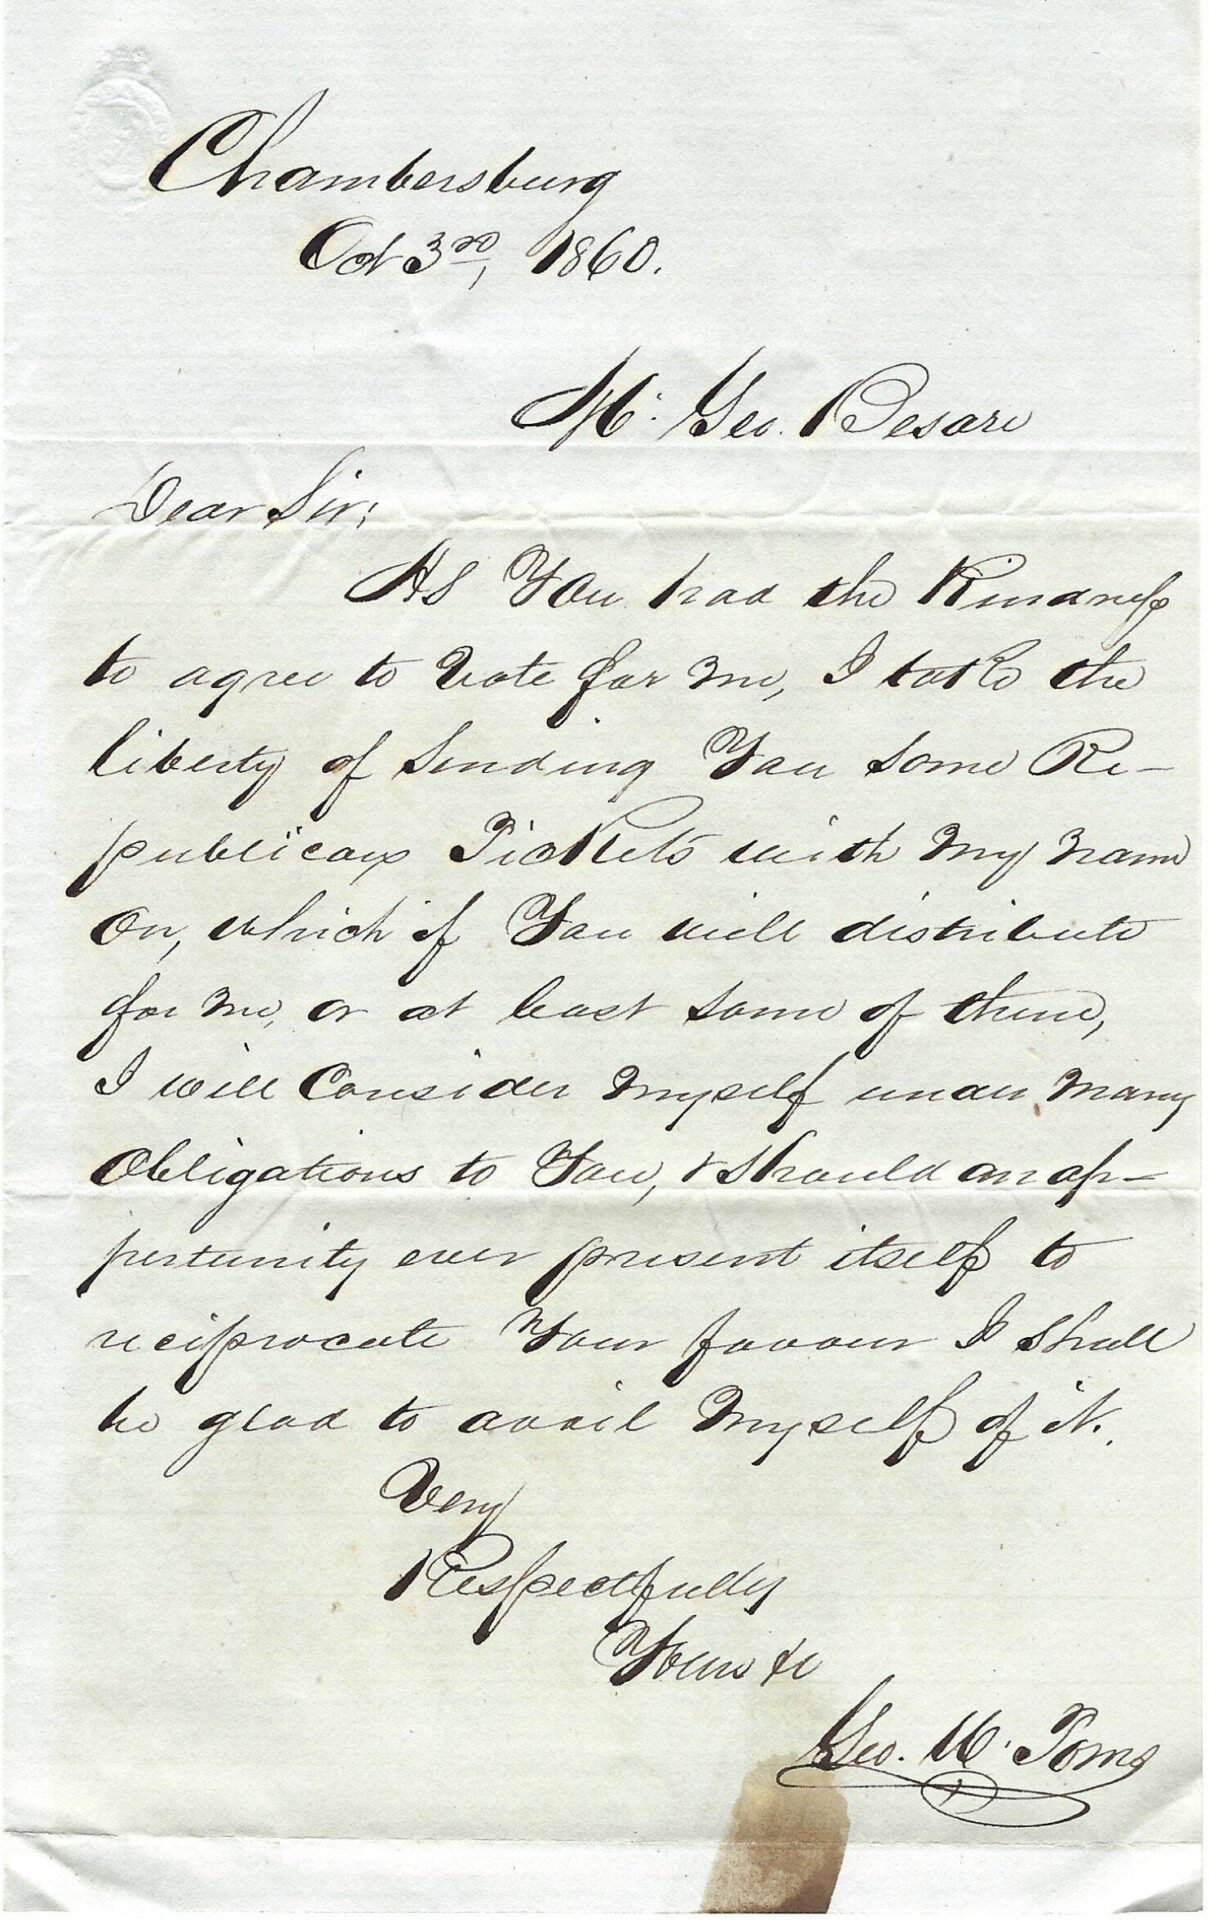 Chambersburg
Oct 3rd, 1860.
Mr. Geo. Besore
Dear Sir;
As You had the Kindness
to agree to Vote for me, I take the
liberty of sending You some Re-
publican Tickets with My name
On, which if You will distribute
for me, or at least some of them,
I will Consider Myself under Many
Obligations to You, & should an op-
pertunity ever present itself to
reciprocate Your favour I shall
be glad to avail Myself of it.
Very
Respectfully
Yours &c
Geo. W. Toms